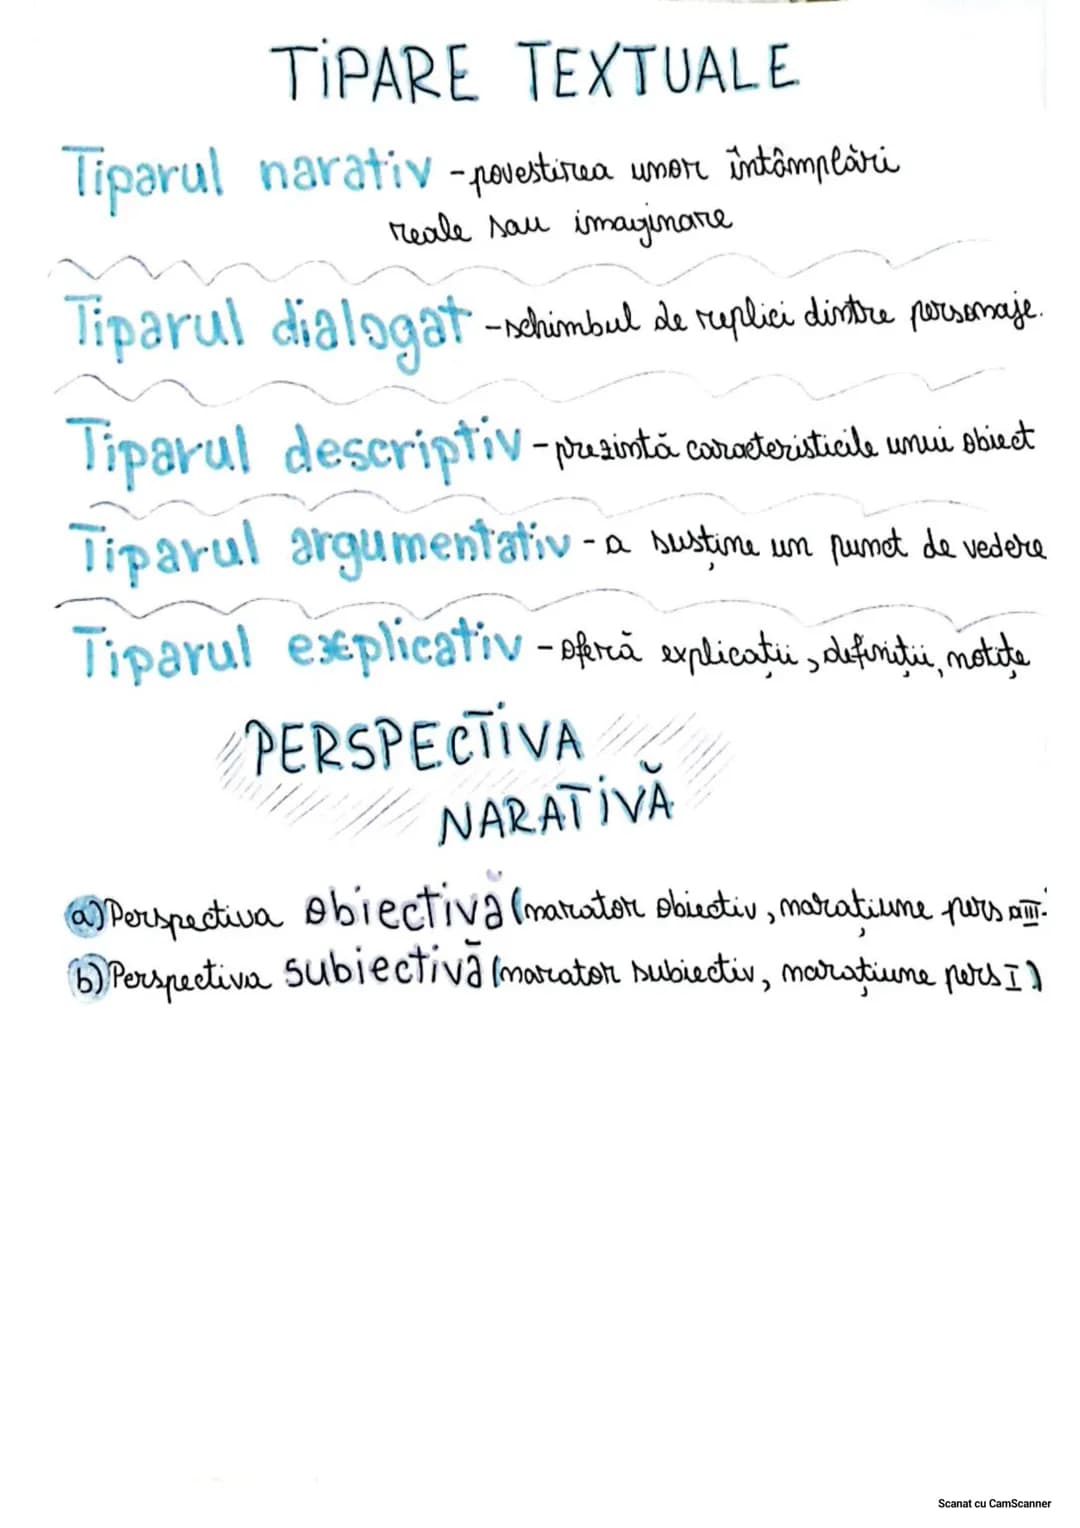 TIPARE TEXTUALE
Tiparul narativ - povestirea unor întâmplări
reale sau imaginare
Tiparul dialogat - schimbul de replici dintre personaje.
Tiparul descriptiv - prezintă caracteristicile unui obiect
Tiparul argumentativ - a susține un punct de vedere
Tiparul explicativ - oferă explicații, definiții, notițe
PERSPECTIVA
NARATIVĂ
a) Perspectiva obiectivă (narator obiectiv, narațiune pers a III-
b) Perspectiva subiectivă (narator subiectiv, narațiune pers I)
Scanat cu CamScanner